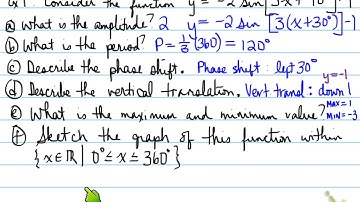 Consider the function y = -2 sin [3x + 90°] - 1
a) What is the amplitude? 2 y = -2 sin [3(x+30°)] - 1
b) What is the period? P = 1/3 (360) = 120°
c) Describe the phase shift. Phase shift: left 30°
d) Describe the vertical translation. Vert transl: down 1
y = -1
e) What is the maximum and minimum value? MAX = 1
MIN = -3
f) Sketch the graph of this function within
{x ∈ ℝ | 0° ≤ x ≤ 360°}